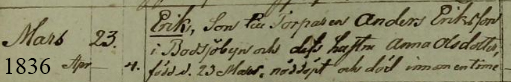 Mars 23. Erik, Son till Torparen Anders Eriksson
i Bodsjöbyn och dess hustru Anna Olsdotter,
1836 Apr — 4. född d. 23 Mars. nöddöpt och död innom en time